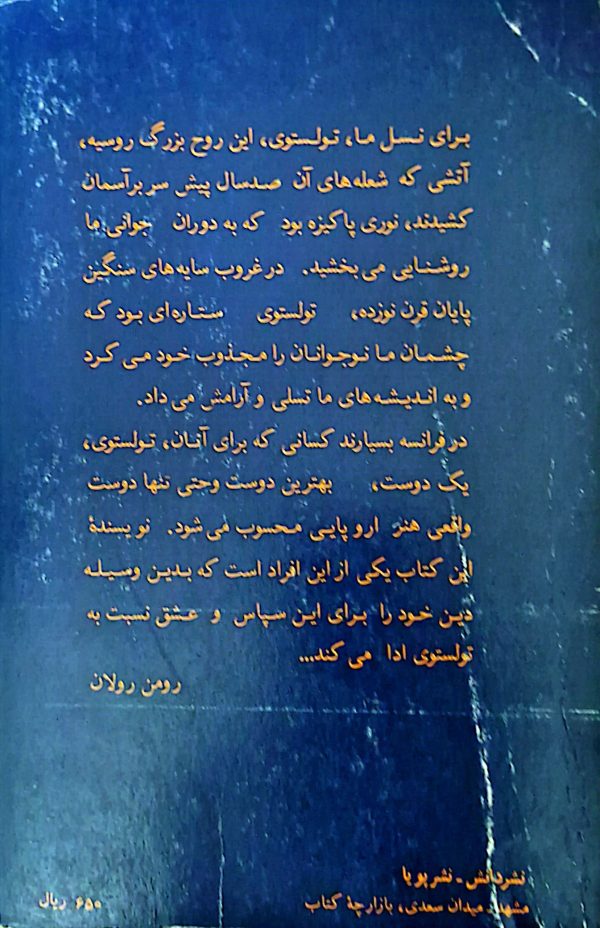 برای نسل ما، تولستوی، این روح بزرگ روسیه،
آتشی که شعله‌های آن صدسال پیش سر برآسمان
کشیدند، نوری پاکیزه بود که به دوران جوانی ما
روشنایی می‌بخشید. در غروب سایه‌های سنگین
پایان قرن نوزده، تولستوی ستاره‌ای بود که
چشمان ما نوجوانان را مجذوب خود می‌کرد
و به اندیشه‌های ما تسلی و آرامش می‌داد.
در فرانسه بسیارند کسانی که برای آنان، تولستوی،
یک دوست، بهترین دوست وحتی تنها دوست
واقعی هنر اروپایی محسوب می‌شود. نویسندهٔ
این کتاب یکی از این افراد است که بدین وسیله
دین خود را برای این سپاس و عشق نسبت به
تولستوی ادا می‌کند...
رومن رولان
نشردانش - نشرپویا
مشهد، میدان سعدی، بازارچهٔ کتاب
۶۵۰ ریال